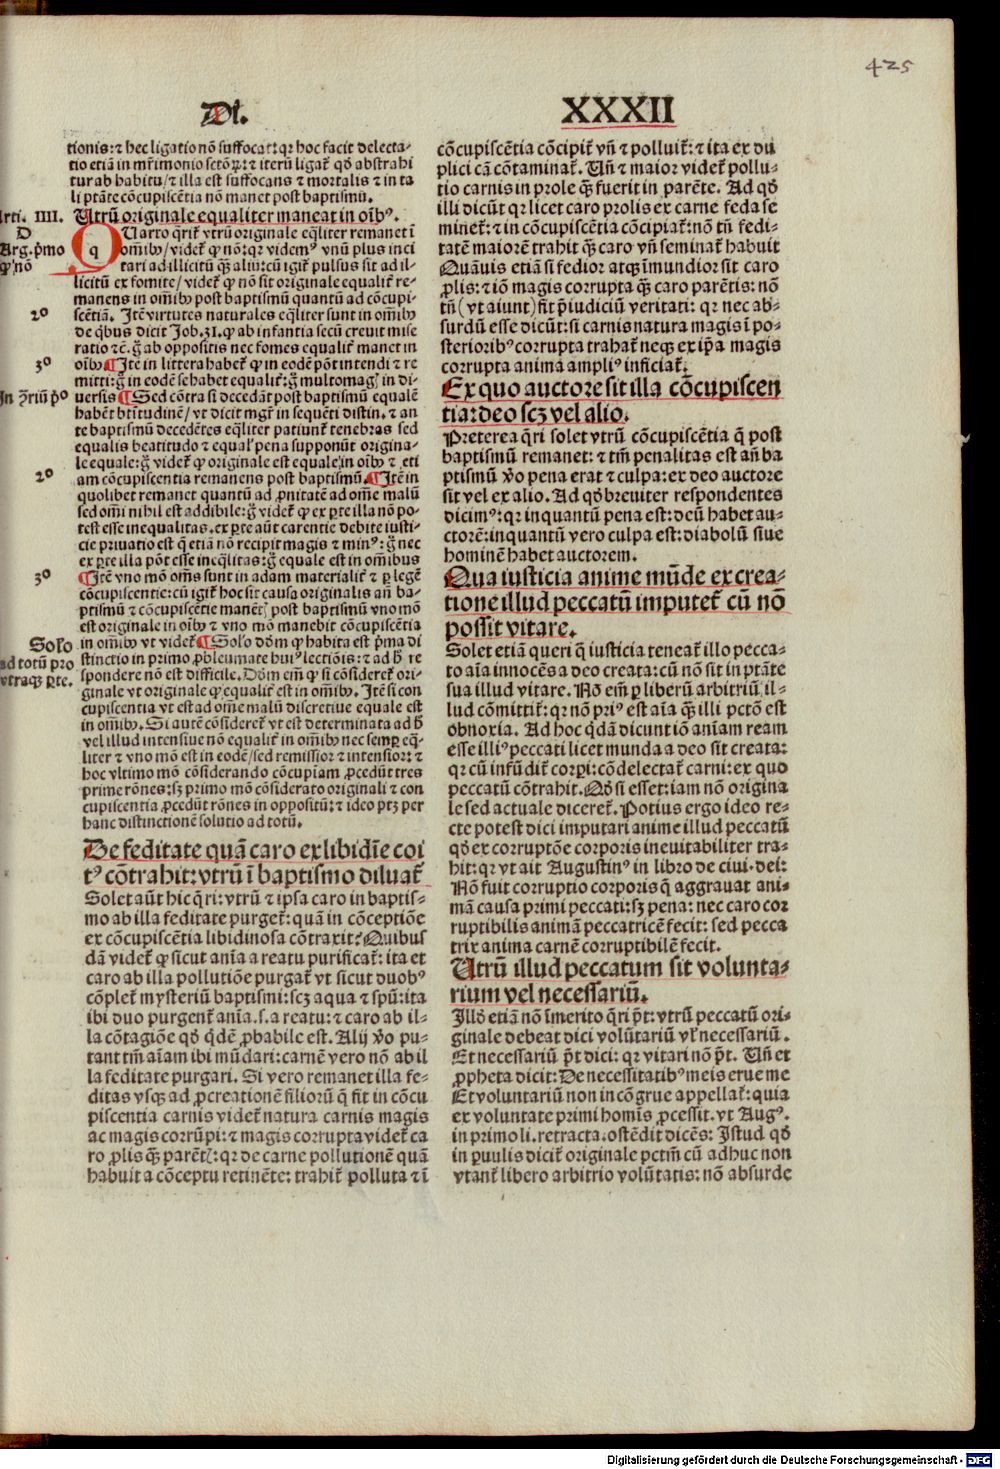 425
Di.
XXXII
tionis: ⁊ hec ligatio nō suffocat: qꝛ hoc facit delecta-
tio etiā in mr̄imonio sctōꝝ: ⁊ iterū ligat̄ qď abstrahi
tur ab habitu/ ⁊ illa est suffocans ⁊ mortalis ⁊ in ta
li ptāte cōcupiscētia nō manet post baptismū.
Arti. IIII.
Utrū originale equaliter maneat in oīb⁹.
D
Arg. p̄mo
ꝙ nō
Quarto q̄rit̄ vtrū originale eq̄liter remanet ī
om̄ibꝰ/ videt̄ ꝙ nō: qꝛ videm⁹ vnū plus inci
tari ad illicitū q̄ꝫ aliū: cū igit̄ pulsus sit ad il-
licitū ex fomite/ videt̄ ꝙ nō sit originale equalit̄ re-
manens in om̄ibꝰ post baptismū quantū ad cōcupi-
2⁰
scētiā. Itē virtutes naturales eq̄liter sunt in om̄ibꝰ
de q̄bus dicit Job. 31. ꝙ ab infantia secū creuit mise
ratio ⁊c̄. g̊ ab oppositis nec fomes equalit̄ manet in
3⁰
oībꝰ ¶ Itē in littera habet̄ ꝙ in eodē pōt intendi ⁊ re
mitti: g̊ in eodē se habet equalit̄: g̊ multomagꝭ in di-
In ꝯ̄riū p̊o
uersis ¶ Sed cōtra si decedāt post baptismū equalē
habēt btītudinē/ vt dicit mgr̄ in sequēti distin. ⁊ an
te baptismū decedētes eq̄liter patiunt̄ tenebras sed
equalis beatitudo ⁊ equal' pena supponūt origina-
le equale: g̊ videt̄ ꝙ originale est equale in oībꝰ ⁊ eti
2⁰
am cōcupiscentia remanens post baptismū. ¶ Itē in
quolibet remanet quantū ad ꝓnitatē ad om̄e malū
sed om̄i nihil est addibile: g̊ videt̄ ꝙ ex ꝑte illa nō po-
test esse inequalitas. ex ꝑte aūt carentie debite iusti-
cie priuatio est q̄ etiā nō recipit magis ⁊ min⁹: g̊ nec
ex ꝑte illa pōt esse ineq̄litas: g̊ equale est in om̄ibus
3⁰
¶ Itē vno mō om̄s sunt in adam materialit̄ ⁊ ꝑ legē
cōcupiscentie: cū igit̄ hoc sit causa originalis an̄ ba-
ptismū ⁊ cōcupiscētie manētꝭ post baptismū vno mō
est originale in oībꝰ ⁊ vno mō manebit cōcupiscētia
Solo
ad totū pro
vtraqꝫ ꝑte.
in om̄ibꝰ vt videt̄ ¶ Solo dōm ꝙ habita est p̄ma di
stinctio in primo ꝓbleumate hui⁹ lectiōis: ⁊ ad h̄ re
spondere nō est difficile. Dōm em̄ ꝙ si cōsideret̄ ori-
ginale vt originale ꝙ equalit̄ est in om̄ibꝰ. Itē si con
cupiscentia vt est ad om̄e malū discretiue equale est
in om̄ibꝰ. Si autē cōsideret̄ vt est determinata ad h̄
vel illud intensiue nō equalit̄ in om̄ibꝰ nec semꝑ eq̄-
liter ⁊ vno mō est in eodē/ sed remissior ⁊ intensior: ⁊
hoc vltimo mō cōsiderando cōcupiam ꝓcedūt tres
prime rōnes: sꝫ primo mō cōsiderato originali ⁊ con
cupiscentia ꝓcedūt rōnes in oppositū: ⁊ ideo ptꝫ per
hanc distinctionē solutio ad totū.
De feditate quā caro ex libidīe coi
t⁹ cōtrahit: vtrū ī baptismo diluat̄
Solet aūt hic q̄ri: vtrū ⁊ ipsa caro in baptis-
mo ab illa feditate purget̄: quā in cōceptiōe
ex cōcupiscētia libidinosa cōtraxit? Quibus
dā videt̄ ꝙ sicut anīa a reatu purificat̄: ita et
caro ab illa pollutiōe purgat̄ vt sicut duob⁹
cōplet̄ mysteriū baptismi: scꝫ aqua ⁊ spū: ita
ibi duo purgent̄ anīa .s. a reatu: ⁊ caro ab il-
la cōtagiōe qď q̇dē ꝓbabile est. Alij v̊o pu-
tant tm̄ aīam ibi mūdari: carnē vero nō ab il
la feditate purgari. Si vero remanet illa fe-
ditas vsqꝫ ad ꝓcreationē filiorū q̄ fit in cōcu
piscentia carnis videt̄ natura carnis magis
ac magis corrūpi: ⁊ magis corrupta videt̄ ca
ro ꝓlis q̄ꝫ parētꝭ: qꝛ de carne pollutionē quā
habuit a cōceptu retinēte: trahit̄ polluta ⁊ ī
cōcupiscētia cōcipit̄ vn̄ ⁊ polluit̄: ⁊ ita ex du
plici cā cōtaminat̄. Un̄ ⁊ maior videt̄ pollu-
tio carnis in prole q̄ꝫ fuerit in parēte. Ad qď
illi dicūt qꝛ licet caro prolis ex carne feda se
minet̄: ⁊ in cōcupiscētia cōcipiat̄: nō tn̄ fedi-
tatē maiorē trahit q̄ꝫ caro vn̄ seminat̄ habuit
Quāuis etiā si fedior atqꝫ īmundior sit caro
ꝓlis: ⁊ iō magis corrupta q̄ꝫ caro parētis: nō
tn̄ (vt aiunt) fit p̄iudiciū veritati: qꝛ nec ab-
surdū esse dicūt: si carnis natura magis ī po-
sterioribꝰ corrupta trahat̄ neqꝫ ex ip̄a magis
corrupta anima ampliꝰ inficiat̄.
Ex quo auctore sit illa cōcupiscen
tia: deo scꝫ vel alio.
Preterea q̄ri solet vtrū cōcupiscētia q̄ post
baptismū remanet: ⁊ tm̄ penalitas est an̄ ba
ptismū v̊o pena erat ⁊ culpa: ex deo auctore
sit vel ex alio. Ad qď breuiter respondentes
dicim⁹: qꝛ inquantū pena est: deū habet au-
ctorē: inquantū vero culpa est: diabolū siue
hominē habet auctorem.
Qua iusticia anime mūde ex crea-
tione illud peccatū imputet̄ cū nō
possit vitare.
Solet etiā queri q̄ iusticia teneat̄ illo pecca-
to aīa innocēs a deo creata: cū nō sit in ptāte
sua illud vitare. Nō em̄ ꝑ liberū arbitriū il-
lud cōmittit̄: qꝛ nō pri⁹ est aīa q̄ꝫ illi pctō est
obnoxia. Ad hoc q̇dā dicunt iō anīam ream
esse illi⁹ peccati licet munda a deo sit creata:
qꝛ cū infūdit̄ corpi: cōdelectat̄ carni: ex quo
peccatū cōtrahit. Qď si esset: iam nō origina
le sed actuale diceret̄. Potius ergo ideo re-
cte potest dici imputari anime illud peccatū
qď ex corruptōe corporis ineuitabiliter tra-
hit: qꝛ vt ait Augustin⁹ in libro de ciui. dei:
Nō fuit corruptio corporis q̄ aggrauat ani-
mā causa primi peccati: sꝫ pena: nec caro cor
ruptibilis animā peccatricē fecit: sed pecca
trix anima carnē corruptibilē fecit.
Utrū illud peccatum sit volunta-
rium vel necessariū.
Illď etiā nō īmerito q̄ri p̄t: vtrū peccatū ori-
ginale debeat dici volūtariū vl̄ necessariū.
Et necessariū p̄t dici: qꝛ vitari nō p̄t. Un̄ et
ꝓpheta dicit: De necessitatibꝰ meis erue me
Et voluntariū non incōgrue appellat̄: quia
ex voluntate primi homīs ꝓcessit. vt Aug⁹.
in primo li. retracta. ostēdit dicēs: Istud qď
in ꝑuulis dicit̄ originale pctm̄ cū adhuc non
vtant̄ libero arbitrio volūtatis: nō absurde
Digitalisierung gefördert durch die Deutsche Forschungsgemeinschaft - DFG